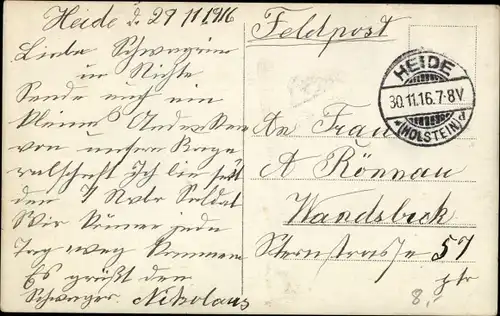 Heide d. 29 11 1916
Liebe Schwegerin
u Nichte
Sende euch ein
kleines Andenken
von unsere
Ich bin seit
den 7 Soldat
Wir können jede
Tag weg kommen
Es grüßt den
Schwager Nikolaus
Feldpost
HEIDE
30.11.16.7-8V.
*(HOLSTEIN)d
An Frau
A Rönnau
Wandsbeck
Sternstraße 57
ptr
8.-